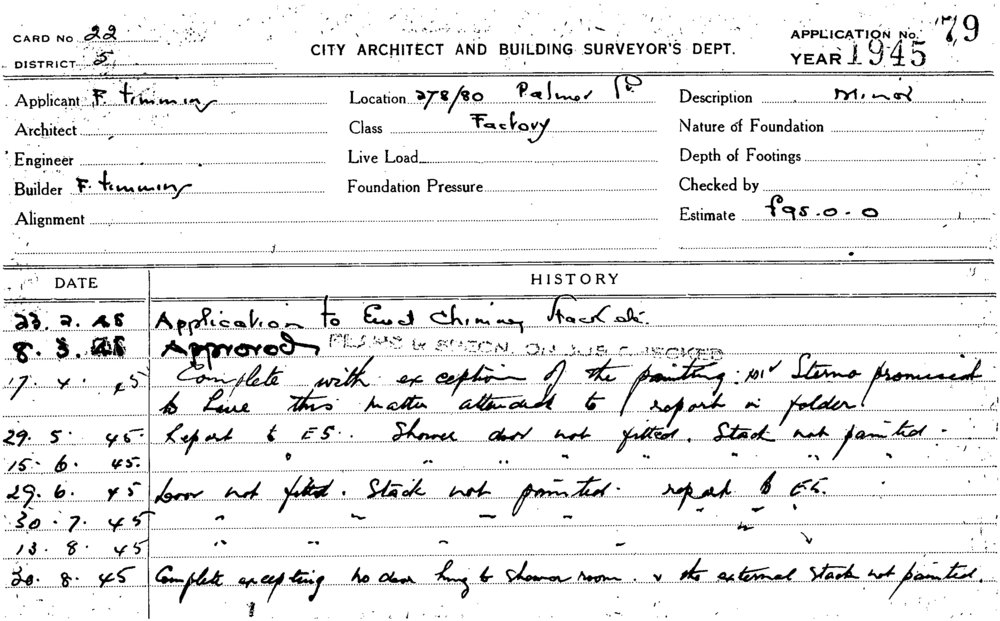 CARD No 22
DISTRICT 5
CITY ARCHITECT AND BUILDING SURVEYOR'S DEPT.
APPLICATION No. 79
YEAR 1945
Applicant F. Timmins
Location 278/80 Palmer St
Description Minor
Architect
Class Factory
Nature of Foundation
Engineer
Live Load
Depth of Footings
Builder F. Timmins
Foundation Pressure
Checked by
Alignment
Estimate £95.0.0
DATE HISTORY
23. 2. 45 Application to Erect Chimney Stack etc.
8. 3. 45 Approved
17. 4. 45 Complete with exception of the painting. promised
to have this matter attended to report in folder.
29. 5. 45. Report to E5. Shower door not fitted. Stack not painted.
15. 6. 45. " " " " " "
29. 6. 45 Door not fitted. Stack not painted. report to E5.
30. 7. 45 " " " " "
13. 8. 45 " " " "
20. 8. 45 Complete excepting no door hung to shower room. & the external stack not painted.